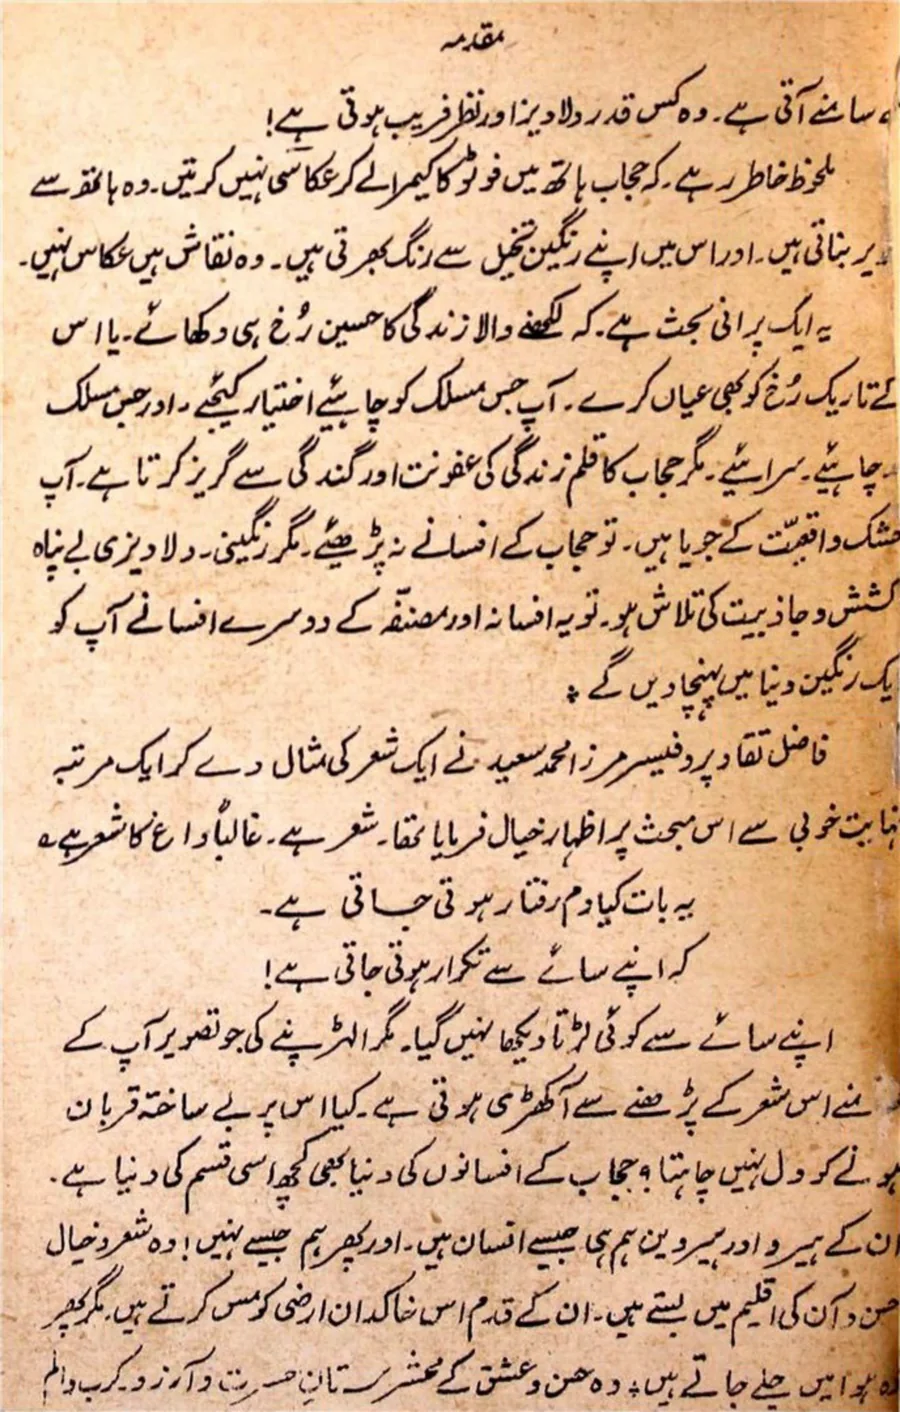 مقدمہ
سامنے آتی ہے۔ وہ کس قدر دلاویز اور نظر فریب ہوتی ہے!
ملحوظ خاطر رہے۔ کہ حجاب ہاتھ میں فوٹو کا کیمرا لے کر عکاسی نہیں کرتیں۔ وہ ہاتھ سے
بناتی ہیں۔ اور اس میں اپنے رنگین تخیل سے رنگ بھرتی ہیں۔ وہ نقاش ہیں عکاس نہیں۔
یہ ایک پرانی بحث ہے۔ کہ لکھنے والا زندگی کا حسین رُخ ہی دکھائے۔ یا اس
کے تاریک رُخ کو بھی عیاں کرے۔ آپ جس مسلک کو چاہئیے اختیار کیجئے۔ اور جس مسلک
چاہئیے۔ سراہئیے۔ مگر حجاب کا قلم زندگی کی عفونت اور گندگی سے گریز کرتا ہے۔ آپ
خشک واقعیّت کے جویا ہیں۔ تو حجاب کے افسانے نہ پڑھیئے۔ مگر رنگینی۔ دلاویزی بے پناہ
کشش و جاذبیت کی تلاش ہو۔ تو یہ افسانہ اور مصنفّہ کے دوسرے افسانے آپ کو
یک رنگین دنیا میں پہنچا دیں گے؞
فاضل نقاد پروفیسر مرزا محمد سعید نے ایک شعر کی مثال دے کر ایک مرتبہ
نہایت خوبی سے اس مبحث پر اظہار خیال فرمایا تھا۔ شعر ہے۔ غالباً داغ کا شعر ہے ؎
یہ بات کیا دم رفتار ہوتی جاتی ہے۔
کہ اپنے سائے سے تکرار ہوتی جاتی ہے!
اپنے سائے سے کوئی لڑتا دیکھا نہیں گیا۔ مگر الہڑپنے کی جو تصویر آپ کے
منے اس شعر کے پڑھنے سے آکھڑی ہوتی ہے۔ کیا اس پر بے ساختہ قربان
ہونے کو دل نہیں چاہتا؟ حجاب کے افسانوں کی دنیا بھی کچھ اسی قسم کی دنیا ہے۔
ان کے ہیرو اور ہیروین ہم ہی جیسے انسان ہیں۔ اور پھر ہم جیسے نہیں! وہ شعر و خیال
حسن و آن کی اقلیم میں بستے ہیں۔ ان کے قدم اس خاکدان ارضی کو مس کرتے ہیں۔ مگر پھر
وہ ہوا میں چلے جاتے ہیں؞ وہ حسن و عشق کے محشرستانِ حسرت و آرزو۔ کرب و الم